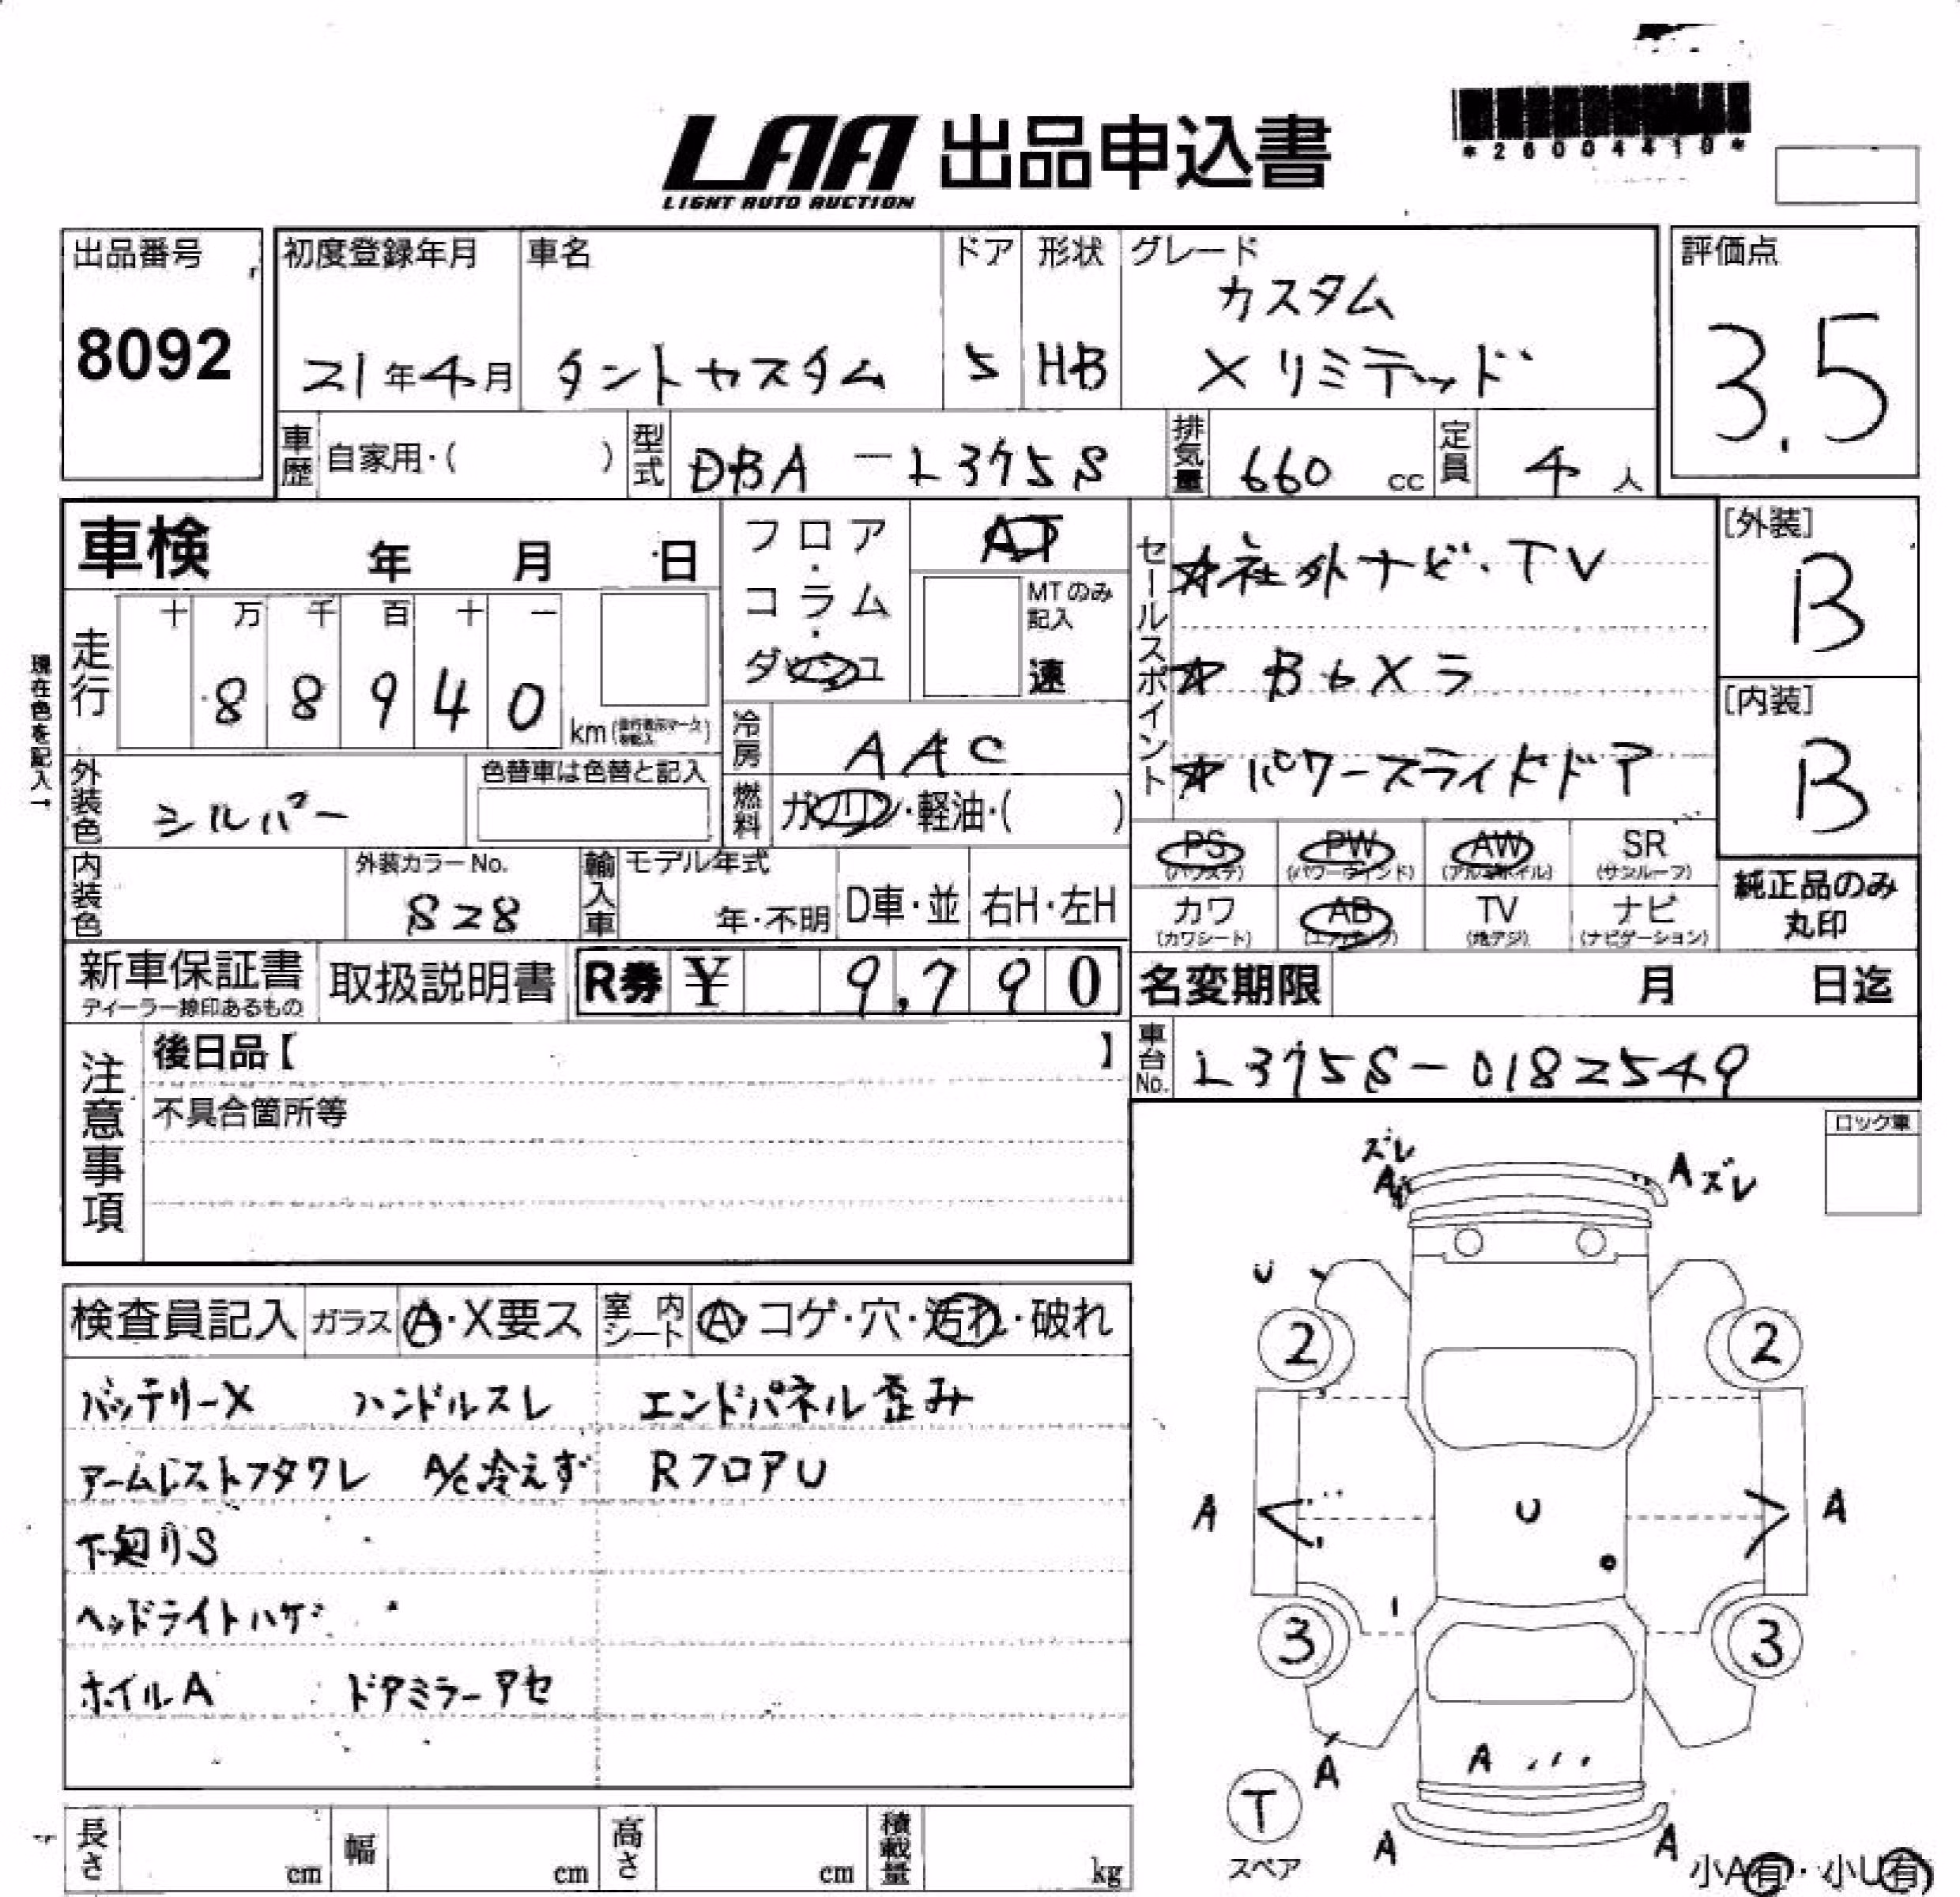 LAA 出品申込書
LIGHT AUTO AUCTION
*26004410*
出品番号
8092
初度登録年月
21年4月
車名
タントカスタム
ドア
5
形状
HB
グレード
カスタム
Xリミテッド
評価点
3.5
車歴
自家用・( )
型式
DBA-L375S
排気量
660 cc
定員
4 人
車検 年 月 日
現在色を記入→
走行
十 万 千 百 十 一
8 8 9 4 0
km
フロア・コラム・ダッシュ
AT
MTのみ記入
速
セールスポイント
☆社外ナビ・TV
☆Bカメラ
☆パワースライドドア
[外装]
B
[内装]
B
冷房
AAC
燃料
ガソリン・軽油・( )
外装色
シルバー
色替車は色替と記入
内装色
外装カラーNo.
S28
輸入車
モデル年式
年・不明
D車・並
右H・左H
PS
(パワステ)
PW
(パワーウインド)
AW
(アルミホイル)
SR
(サンルーフ)
カワ
(カワシート)
AB
(エアバック)
TV
(地デジ)
ナビ
(ナビゲーション)
純正品のみ
丸印
新車保証書
ディーラー捺印あるもの
取扱説明書
R券 ¥ 9,790
名変期限 月 日迄
車台No.
L375S-0182549
注意事項
後日品【 】
不具合箇所等
ロック車
検査員記入
ガラス
A・X要ス
室内シート
A・コゲ・穴・汚れ・破れ
バッテリーX ハンドルスレ エンドパネル歪み
アームレストフタワレ A/C冷えず RフロアU
下廻りS
ヘッドライトハゲ
ホイルA ドアミラーアセ
ズレ
A
A ズレ
U
2
2
A
U
A
3
3
A
A
T
スペア
A
A
小A有・小U有
長さ cm
幅 cm
高さ cm
積載量 kg